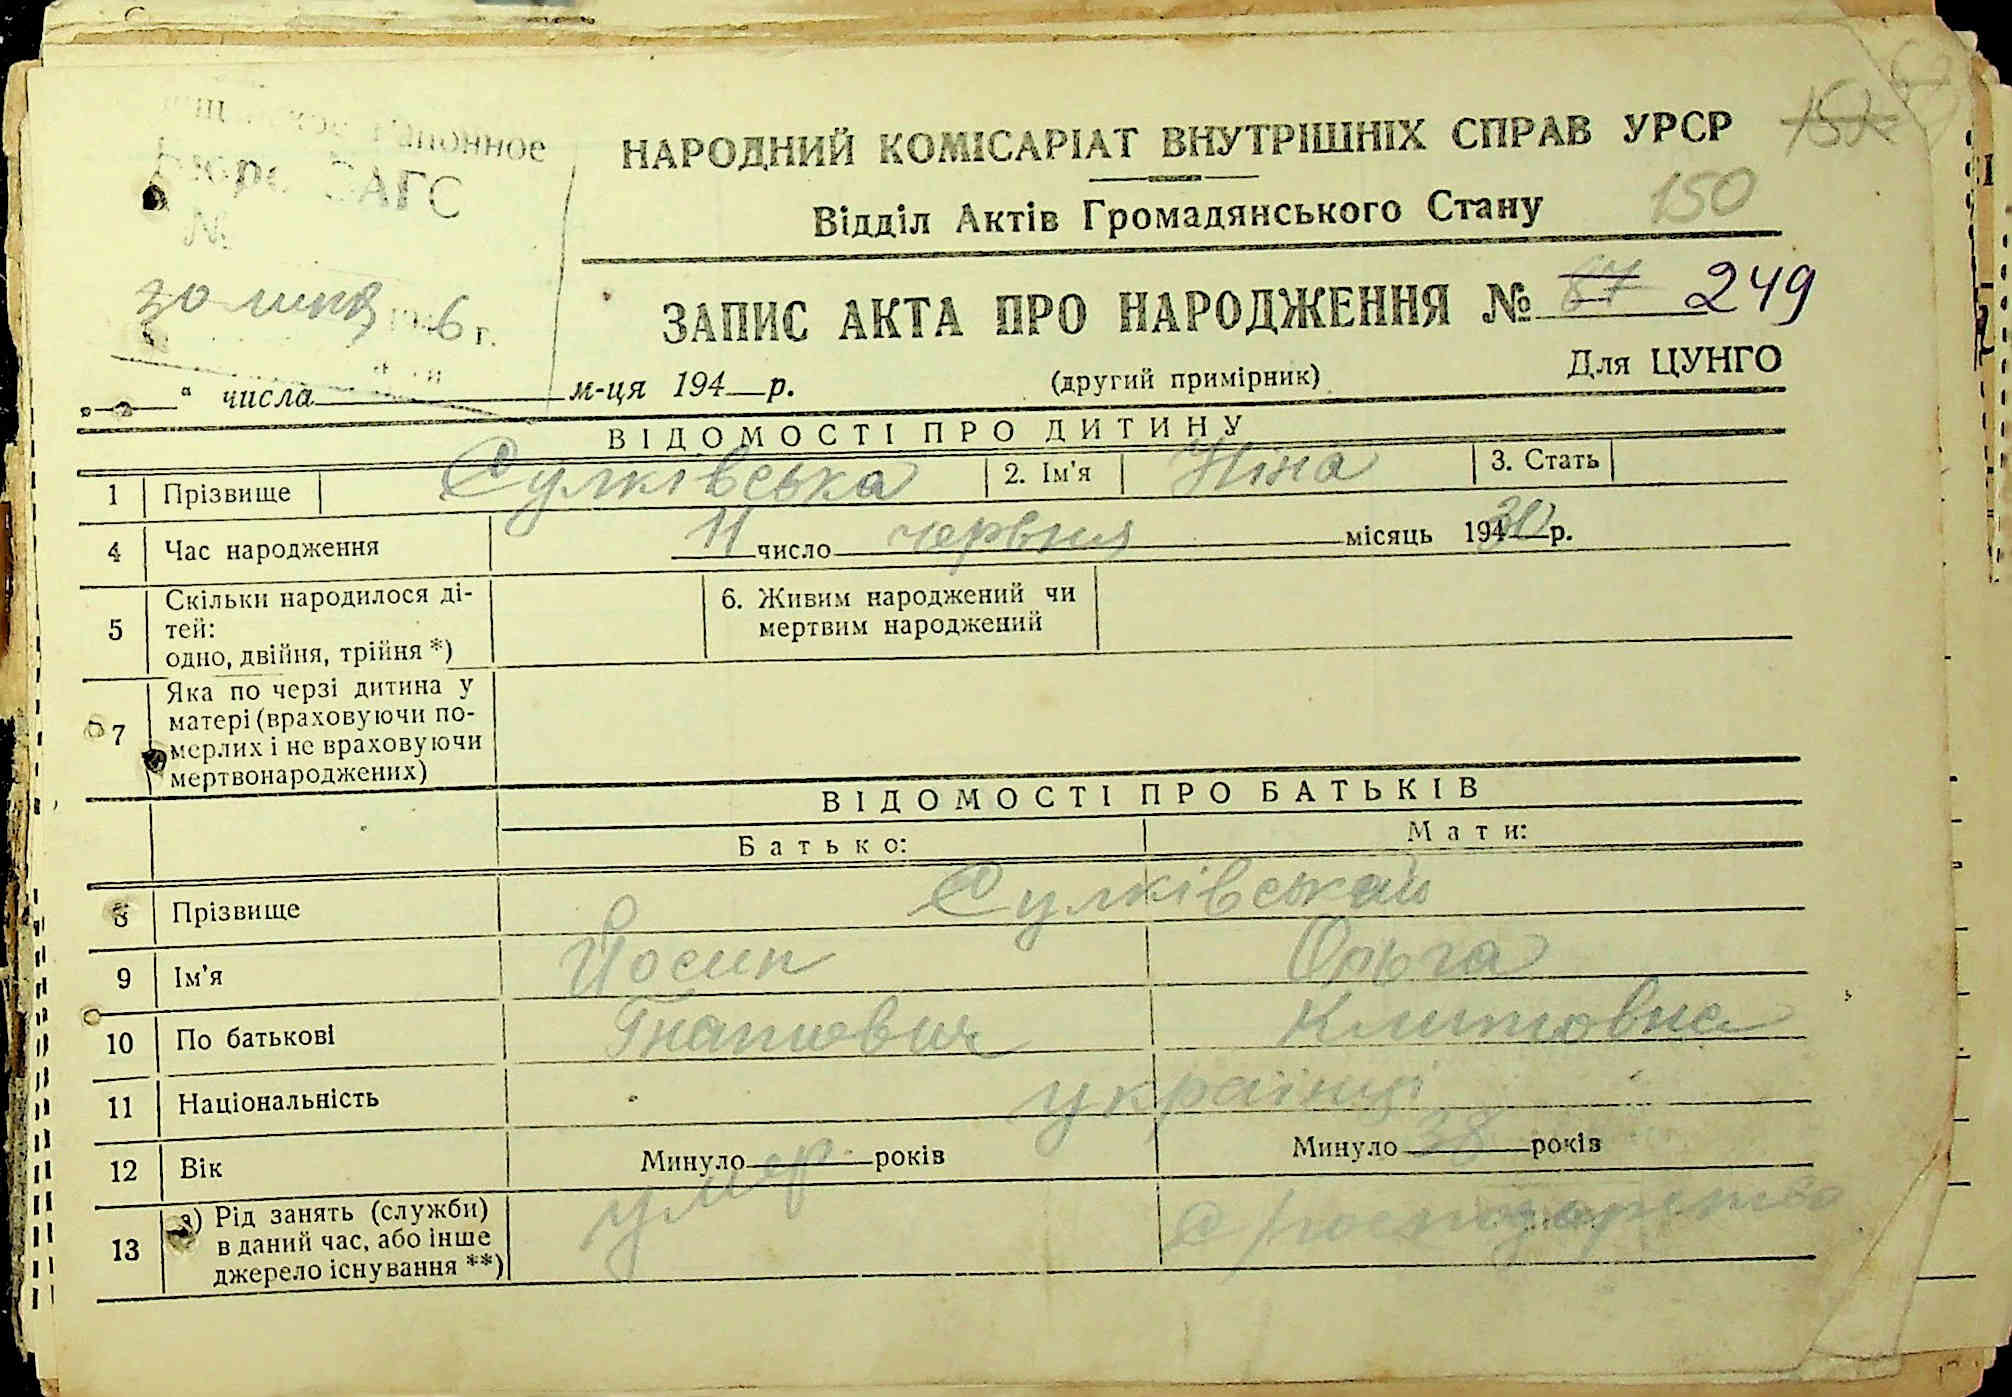 Бюро ЗАГС
№
г.
НАРОДНИЙ КОМІСАРІАТ ВНУТРІШНІХ СПРАВ УРСР
Відділ Актів Громадянського Стану 150
ЗАПИС АКТА ПРО НАРОДЖЕННЯ № 67 249
„ “ числа м-ця 194 р. (другий примірник) Для ЦУНГО
ВІДОМОСТІ ПРО ДИТИНУ
1 Прізвище Сулківська 2. Ім'я Ніна 3. Стать
4 Час народження 11 число червня місяць 194 30 р.
5 Скільки народилося ді-
тей:
одно, двійня, трійня *)
6. Живим народжений чи
мертвим народжений
7 Яка по черзі дитина у
матері (враховуючи по-
мерлих і не враховуючи
мертвонароджених)
ВІДОМОСТІ ПРО БАТЬКІВ
Батько: Мати:
8 Прізвище
9 Ім'я Йосип Ольга
10 По батькові Гнатиевич
11 Національність українці
12 Вік Минуло років Минуло 38 років
13 а) Рід занять (служби)
в даний час, або інше
джерело існування **)
умер с/господарство